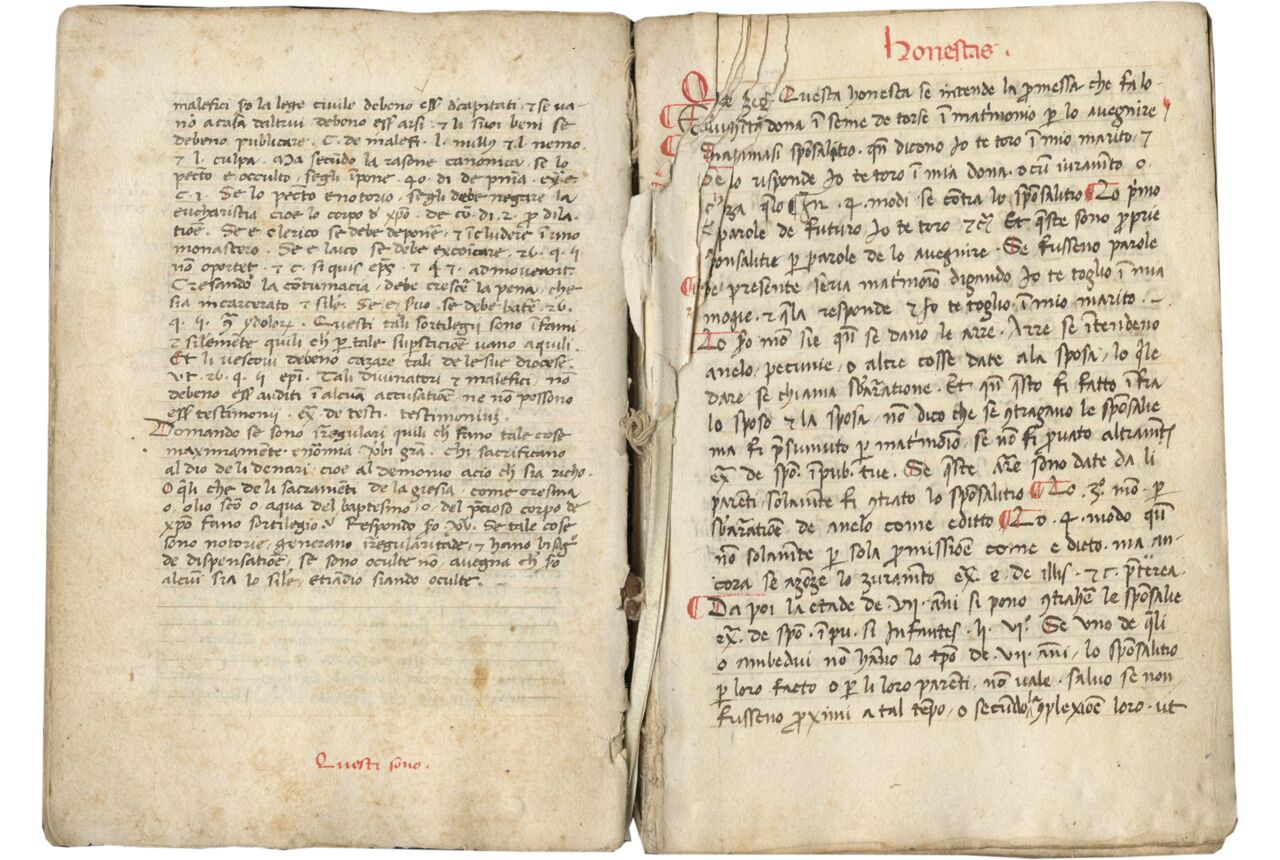 malefici so la lege civile debeno ess̄ dcapitati · ⁊ se va-
no a casa daltrui debeno ess̄ arsi · ⁊ li suoi beni se
debeno publicare · C. de malefi. l. nullꝰ ⁊ l. nemo.
⁊ l. culpa. Ma secūdo la rasone canonica, se lo
pecto e occulto, segli īpone 40. di de pn̄ia. ex. e.
c. i. Se lo pecto e notorio, segli debe negare la
eucharistia cioe lo corpo d xp̄o. de cō. di. 2. p dila-
tiōe. Se e clerico se debe deponē ⁊ īcludere ī uno
monastero. Se e laico se debe excōicare. 26. q. ii
nō oportet. ⁊ c. si quis ep̄s. ⁊ q. 7. admoveant.
Cresando la cōtumacia, debe crescē la pena, che
sia incarcerato ⁊ silē. Se e suo se debe batē. 26.
q. ii. ydoloꝝ. Questi tali sortilegii sono īfami
⁊ silemēte quili ch p tale supsticiōe vano a quili.
Et li vescovi debeno cazare tali de le sue diocese.
ut. 26. q. ii ep̄i. Tali divinatori ⁊ malefici, nō
debeno ess̄ auditi ī alcūa accusatiōe ne nō possono
ess̄ testimonii. ex. de testi. testimoniuꝫ.
Domando se sono irregulari quili ch fano tale cose
maximamente enōmia v̄bi gr̄a. chi sacrificano
al dio de li denari cioe al demonio acio ch sia richo.
O q̄li che de li sacramēti de la gresia, come cresma
o, olio scō o aqua del baptesmo, o, del p̄cioso corpo de
xp̄o fano sortilegio. Respondo Se tale cose
sono notorie, generano irregularitade, ⁊ hano bisogº
de dispensatiōe, se sono oculte nō, avegna ch so
alcui sia lo silē, etiādio siando oculte.
Questi sono.
Honestas.
Questa honesta se intende la p̄messa che fa lo-
dona ī seme de torse ī matīmonio p lo avegnire
chiamasi spōsalitio. qn̄ dicono Io te toro ī mio marito. ⁊
lo risponde Io te toro ī mia dona. o cū iuramēto o.
za q̄lo 4. modi se contra lo spōsalitio Lo p̄mo
parole de futuro Io te toro ⁊c̄ Et q̄ste sono p̄prie
sponsalitie p parole de lo avegnire. Se fusseno parole
de presente seria matīmōio digando Io te toglio ī mia
mogie. ⁊ q̄la responde ⁊ Io te toglio ī mio marito. –
Lo sō mō sie qn̄ se dano le arre. Arre se intendeno
anelo, pecunie, o altre cosse date ala sposa, lo q̄le
dare se chiama sb̄aratione. Et qn̄ q̄sto fi fatto īfra
lo sposo ⁊ la sposa, nō dico che se ꝯtragano le spōsalie
ma fi p̄sumuto p matīmōio, se nō fi p̄vato altramēt
ex. de spō. ī pub. tue. Se q̄ste are sono date da li
parēti solamēte fi ꝯtrato lo spōsalitio Lo. 3º. mō. p
sb̄aratiōe de anelo come e ditto Lo. 4. modo qn̄
nō solamēte p sola p̄missiōe come e dicto. ma an-
cora se azonze lo zuramēto ex. e. de illis. ⁊ c. p̄terea.
Da poi la etade de. vii. āni si pono ꝯtrahē le spōsalie
ex. de spō. ī pu. si infantes. li. viº. Se uno de q̄li
o ambedui nō hano lo tp̄o de. vii. āni, lo spōsalitio
p loro facto o p li loro parēti, nō vale. salvo se non
fusseno p̄ximi a tal tēpo, o secūdo la ꝯplexiōe loro. ut